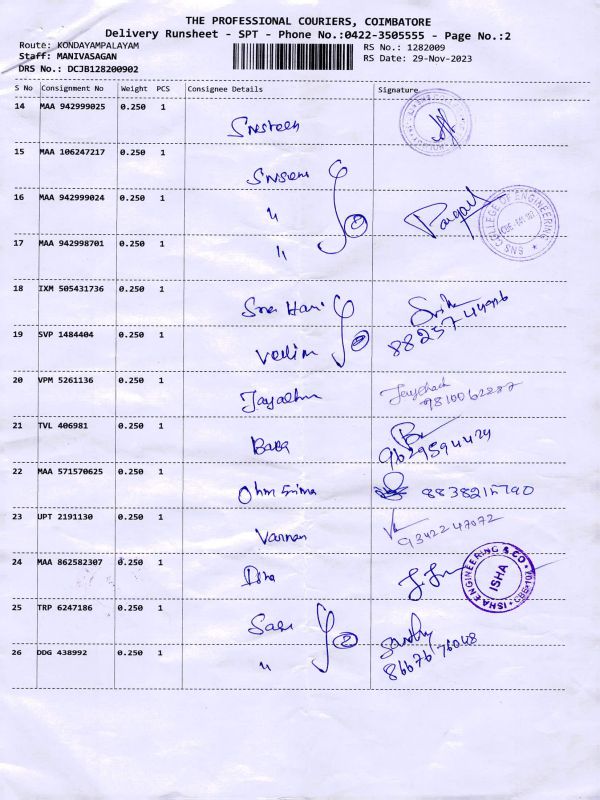 THE PROFESSIONAL COURIERS, COIMBATORE
Delivery Runsheet - SPT - Phone No.:0422-3505555 - Page No.:2
Route: KONDAYAMPALAYAM RS No.: 1282009
Staff: MANIVASAGAN RS Date: 29-Nov-2023
DRS No.: DCJB128200902
S No Consignment No Weight PCS Consignee Details Signature
14 MAA 942999025 0.250 1
15 MAA 106247217 0.250 1
16 MAA 942999024 0.250 1 "
SNS COLLEGE OF ENGINEERING
17 MAA 942998701 0.250 1 "
18 IXM 505431736 0.250 1 Sree Hari
19 SVP 1484404 0.250 1
20 VPM 5261136 0.250 1
9810062287
21 TVL 406981 0.250 1 Baba
9629594424
22 MAA 571570625 0.250 1
23 UPT 2191130 0.250 1 Varman
9342247072
24 MAA 862582307 0.250 1
ISHA ENGINEERING & CO
ISHA
25 TRP 6247186 0.250 1 2
26 DDG 438992 0.250 1 "
8667676048